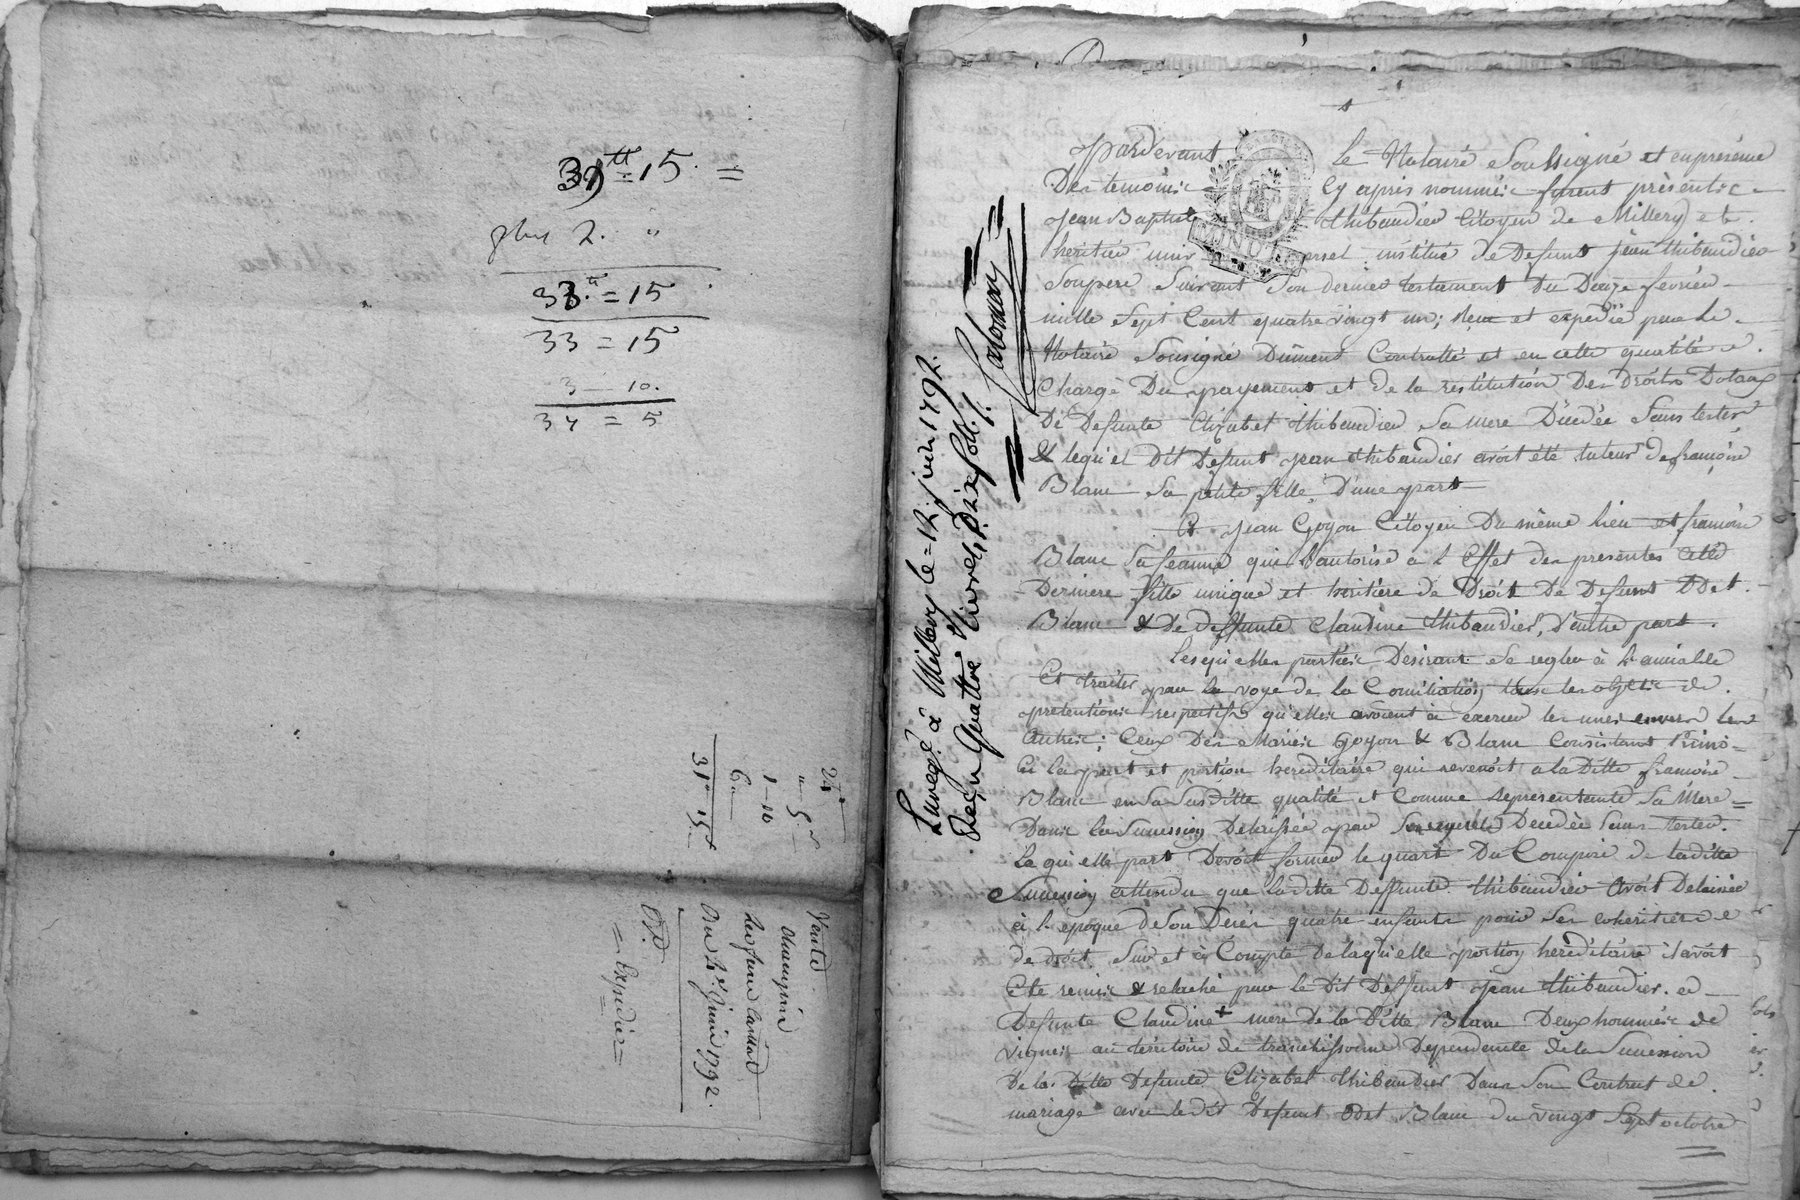 39tt = 15. =
plus 2. "
33.tt = 15
33 = 15
3 — 10.
37 = 5
" 5
1 — 10
6 "
31 " 15
Vente
du 12 Juin 1792.
= Expédiée =
Enregé à Millery le 12 juin 1792.
Reçu quattre Livres Dix sols /.
Pardevant Le Notaire Soussigné et en presence
Des temoins Cy après nommés furent présents
Jean Baptiste thibaudier Citoyen de Millery et
heritier universel institué de Defunt jean thibaudier
Son pere Suivant Son dernier testament Du Douze fevrier
mille Sept Cent quatre vingt un; Reçu et expedié par le
Notaire Sousigné Dûment Controllé et en cette qualité
Chargé Du payement et de la restitution Des Droits Dotaux
De Defunte Elizabet thibaudier Sa mere Décedée Sans tester
& lequel Dit Defunt Jean thibaudier avoit été tuteur De françoise
Blanc Sa petite fille, D'une part
Et Jean Goyon Citoyen Du même lieu et françoise
Blanc Sa feamme qu'il autorise a l'Effet des presentes Cette
Derniere fille unique et heritiere de Droit De Defunt Odet
Blanc & De deffunte Claudine thibaudier, D'autre part.
Lesquelles parties Desirant Se regler à l'amiable
Et traiter par la voye de la Conciliation tous les objets de
pretentions respectifs qu'elles avoient à exercer les unes envers les
Autres; Ceux Des Mariés Goyon & Blanc Consistant Primo
En la part et portion hereditaire qui revenoit a la Ditte françoise
Blanc en Sa Susditte qualité et Comme representante Sa Mere =
Dans la Succession Delaissée par Decedée Sans tester.
La quelle part Devoit former le quart Du de laditte
Succession attendu que laditte Deffunte thibaudier Avoit Delaissée
à l'epoque de Son Décés quatre enfants pour Ses coheritiers
de droit, Sur et à Compte De laquelle portion hereditaire il avoit
Eté remis & relaché par le Dit Deffunt Jean thibaudier. a
Defunte Claudine + mere De la Ditte Blanc Deux hommées de
vignes au territoire de Dependente de la Succession
De la Ditte Defunte Elizabet thibaudier Dans Son Contrat de
mariage avec le dit Defunt Odet Blanc du vingt Sept octobre